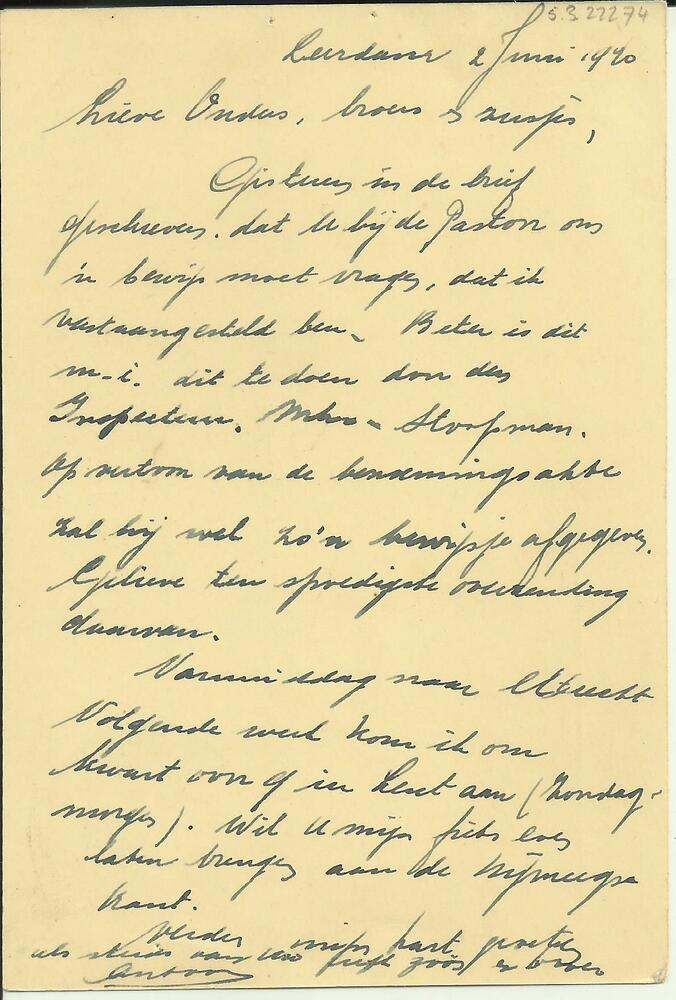 5.3.22274
Leerdam 2 Juni 1940
Lieve Ouders, broers & zusjes,
Gisteren in de brief
geschreven dat U bij de Pastoor ons
'n bewijs moet vragen, dat ik
vast aangesteld ben. Beter is dit
m.i. dit te doen door den
Inspecteur. Mhr. Stoopman.
Op vertoon van de benoemingsakte
zal hij wel zo'n bewijsje afgegeven.
Gelieve ten spoedigste overzending
daarvan.
Vanmiddag naar Utrecht
Volgende week kom ik om
kwart voor 9 in Lent aan (Zondag-
morgen). Wil U mijn fiets even
laten brengen aan de Nijmeegse
kant.
Verder mijn hart. groeten
als steeds van uw zoon en broer
Antoon